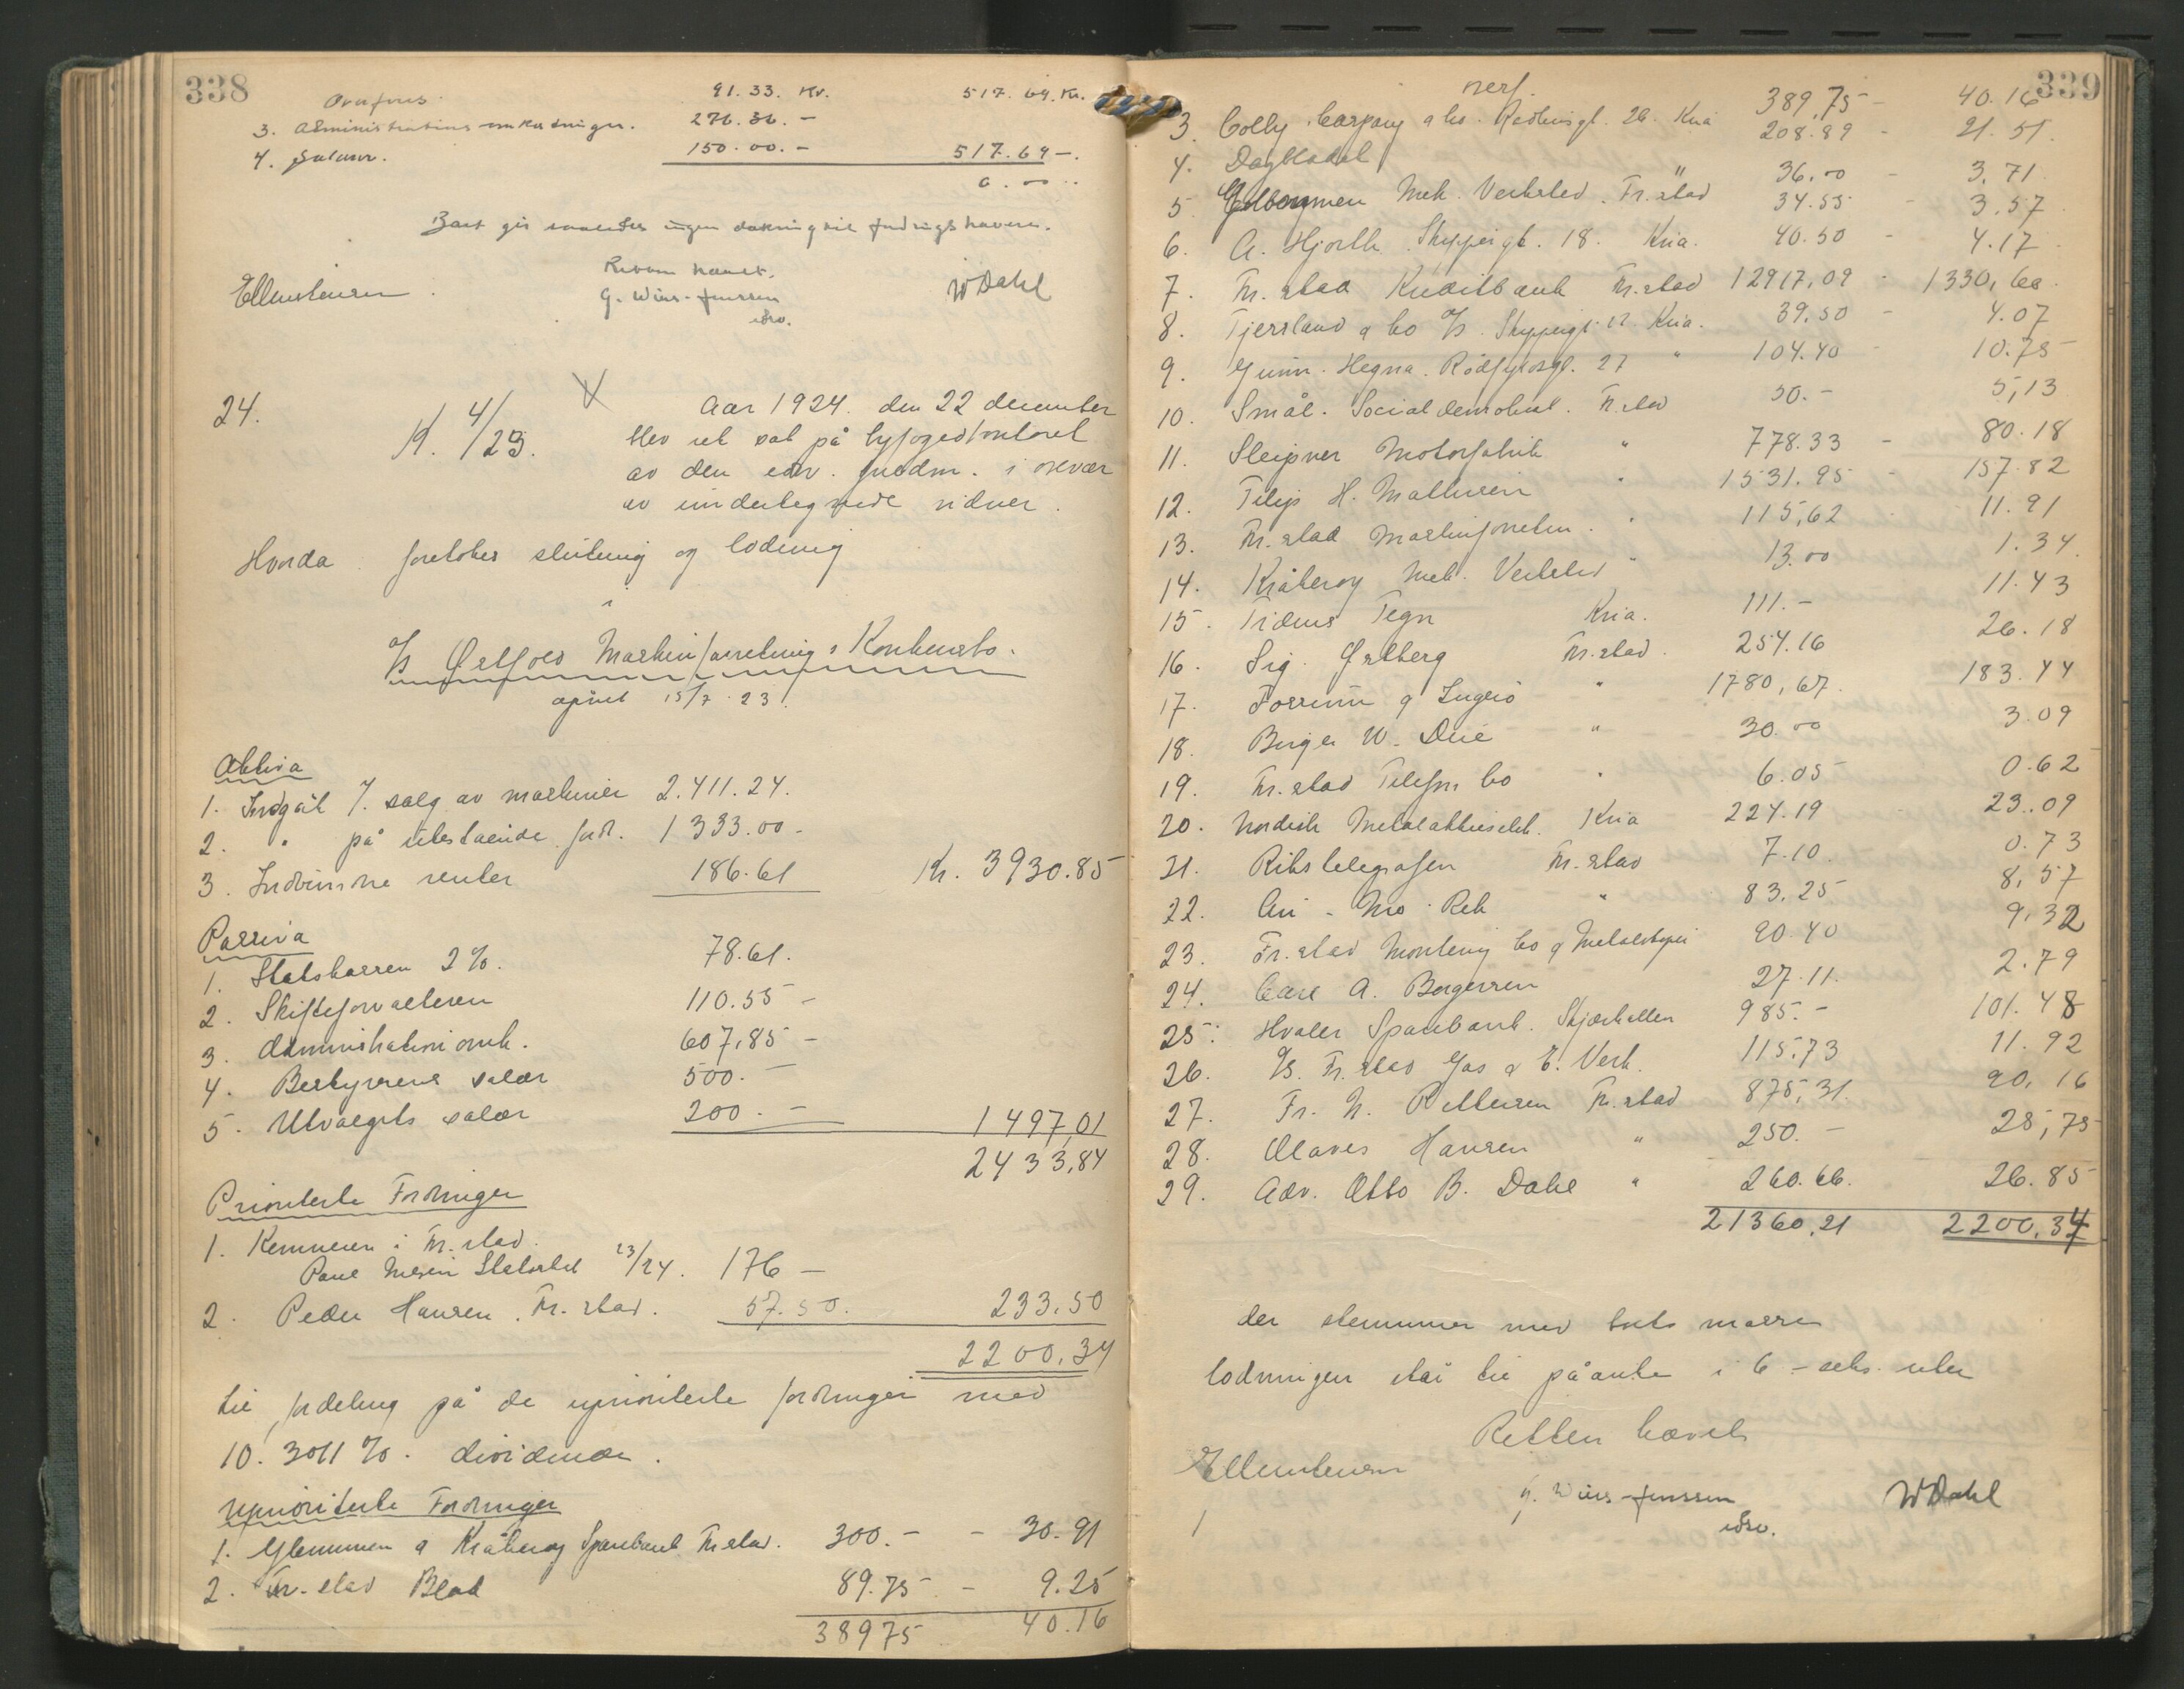 338
Overført 91.33. Kr. 517.69. Kr.
3. Administrations omkostninger. 276.36. -
4. Salær. 150.00. - 517.69 -.
0.00..
Boet gir saaledes ingen dækning til fordringshavere.
Retten hævet.
Ellensteinsen G. Wiers-Jenssen WDahl
edsv.
24.
K. 4/23. Aar 1924. den 22 december
blev ret sat på byfogedkontoret
av den edsv. fuldm. i nærvær
av undertegnede vidner.
Hvorda foretokes slutning og lodning
i
A/S Østfold Maskinforretnings Konkursbo.
åpnet 15/7. 23.
Aktiva
1. Indgåt v. salg av maskiner 2.411.24.
2. " på utestående ford. 1333.00 -
3. Indvundne renter 186.61 Kr. 3930.85
Passiva
1. Statskassen 2 %. 78.61.
2. Skifteforvalteren 110.55 -
3. Administrationsomk. 607,85 -
4. Bestyrerens salær 500. -
5. Utvalgets salær 200. - 1497,01
2433,84
Prioriterte Fordringer
1. Kemneren i Fr.stad.
Paul Nilsen Statsskat 23/24. 176 -
2. Peder Hansen. Fr.stad. 57.50. 233.50
2200,34
til fordeling på de uprioriterte fordringer med
10.3011 %. dividende.
Uprioriterte Fordringer
1. Glemmen & Kråkerøy Sparebank Fr.stad. 300. - - 30.91
2. Fr.stad Blad 89.75 - 9.25
38975 40.16
339
overf. 389,75 - 40.16
3. Colly Company & Co. Rådhusgt. 26. Kria 208.89 - 21.51.
4. Dagbladet " 36.00 - 3.71
5. Mek. Verksted. Fr.stad 34.55 - 3.57
6. A. Hjorth. Skippergt. 18. Kria. 40.50 - 4.17
7. Fr.stad Kreditbank Fr.stad 12917,09 - 1330,60.
8. Fjersland & Co A/S. Skippergt. Kria. 39.50 - 4.07
9. Gunn. Hegna. Rådhusgt. 27 " 104.40 10.75
10. Smål. Socialdemokrat. Fr.stad 50. - 5,13
11. Sleipner Motorfabrik " 778.33 - 80.18
12. Filip H. Mathisen " 1531.95 - 157.82
13. Fr.stad Maskinforretn. " 115,62 11.91
14. Kråkerøy Mek. Verksted " 13.00 1.34.
15. Tidens Tegn Kria. 111. - 11.43
16. Sig. Østberg Fr.stad. 254.16 26.18
17. " 1780,67. 183.44
18. Birger W. " 30.00 3.09
19. Fr.stad Telefon Co " 6.05 0.62
20. Nordisk Metalaktieselsk. Kria 224.19 23.09
21. Rikstelegrafen Fr.stad 7.10. 0.73
22. " 83.25 8,57
23. Fr.stad Montering Co & Metalstøperi 90.40 9,32
24. Carl A. Borgersen 27.11. 2.79
25. Hvaler Sparebank. Skjærhallen 985. - 101.48
26. A/S. Fr.stad Gas & E. Verk. 115.73 11.92
27. Fr. N. Pettersen Fr.stad 875,31. 90,16
28. Olaves Hansen " 250. - 25,75
29. Adv. Otto B. Dahl " 260.66. 26.85
21360,21 2200,34
der stemmer med boets masse
lodningen står til påanke i 6 - seks. uker
Retten hævet
Ellensteinsen
G. Wiers-Jenssen WDahl
edsv.